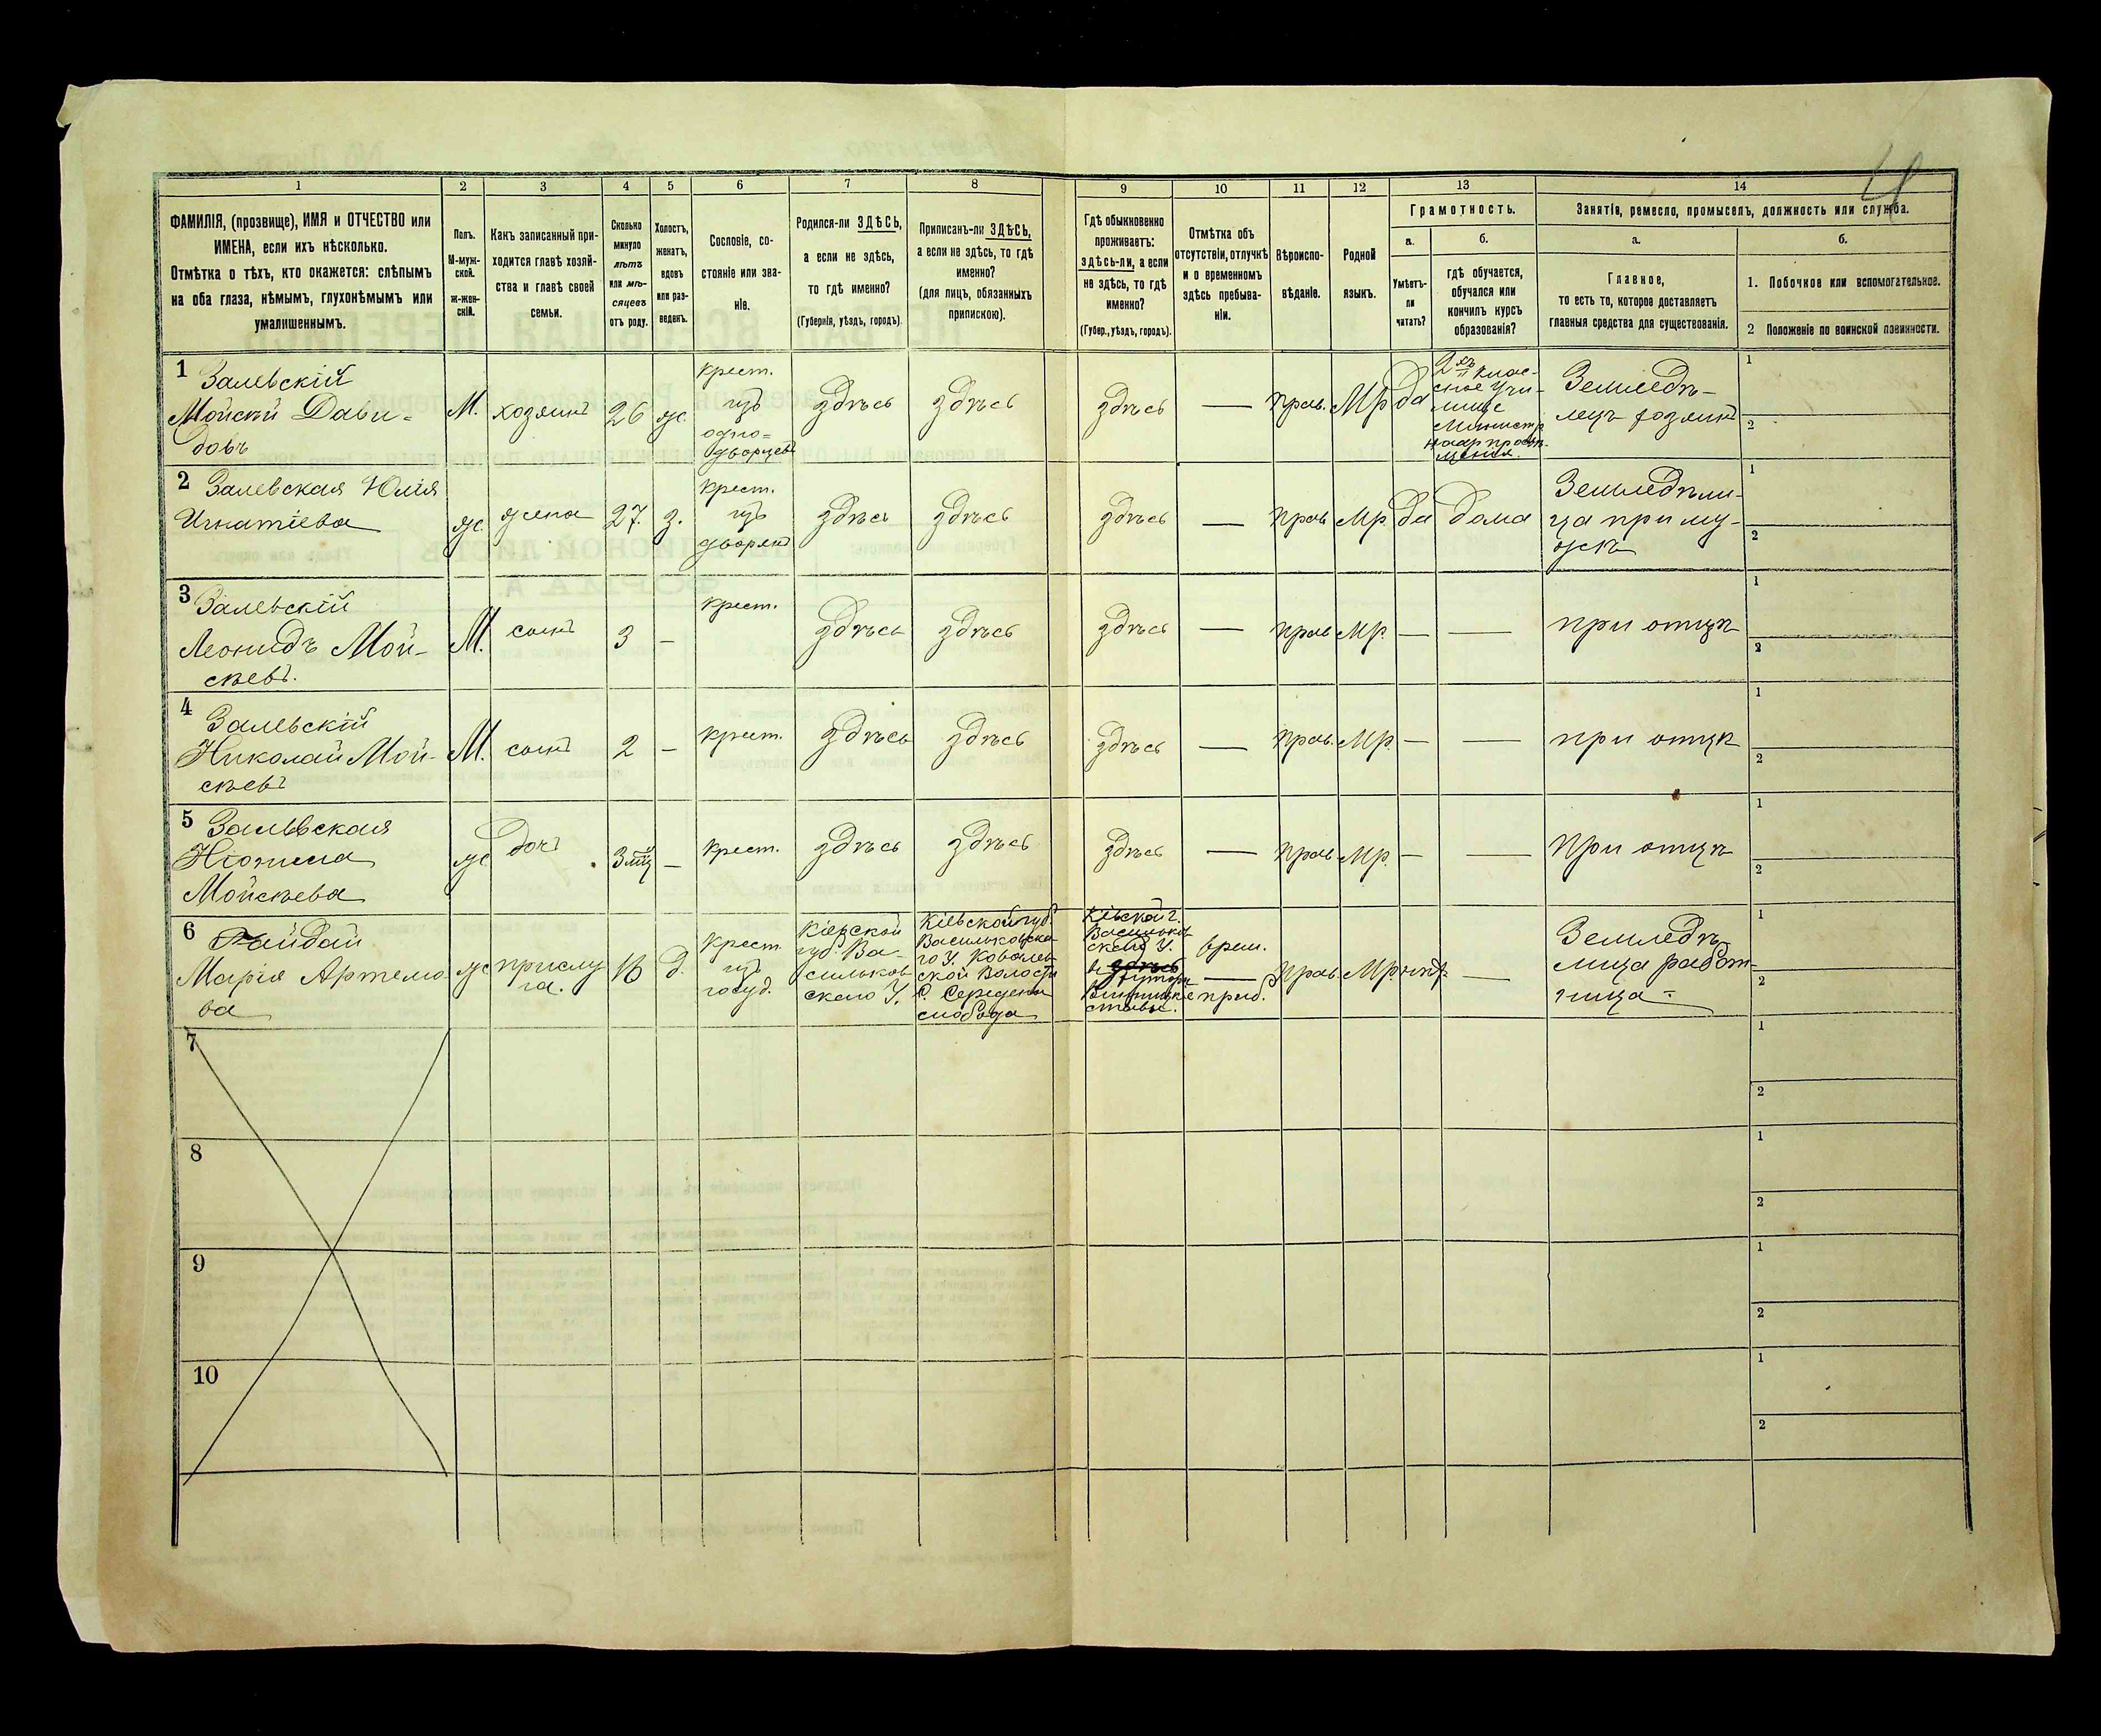 4
1
2
3
4
5
6
7
8
9
10
11
12
13
14
ФАМИЛІЯ, (прозвище), ИМЯ и ОТЧЕСТВО или
ИМЕНА, если ихъ нѣсколько.
Отмѣтка о тѣхъ, кто окажется: слѣпымъ
на оба глаза, нѣмымъ, глухонѣмымъ или
умалишеннымъ.
Полъ.
М-муж-
ской.
Ж-жен-
скій.
Какъ записанный при-
ходится главѣ хозяй-
ства и главѣ своей
семьи.
Сколько
минуло
лѣтъ
или мѣ-
сяцевъ
отъ роду.
Холостъ,
женатъ,
вдовъ
или раз-
веденъ.
Сословіе, со-
стояніе или зва-
ніе.
Родился-ли ЗДѢСЬ,
а если не здѣсь,
то гдѣ именно?
(Губернія, уѣздъ, городъ).
Приписанъ-ли ЗДѢСЬ,
а если не здѣсь, то гдѣ
именно?
(для лицъ, обязанныхъ
припискою).
Гдѣ обыкновенно
проживаетъ:
здѣсь-ли, а если
не здѣсь, то гдѣ
именно?
(Губер., уѣздъ, городъ).
Отмѣтка объ
отсутствіи, отлучкѣ
и о временномъ
здѣсь пребыва-
ніи.
Вѣроиспо-
вѣданіе.
Родной
языкъ.
Грамотность.
а.
Умѣетъ-
ли
читать?
б.
гдѣ обучается,
обучался или
кончилъ курсъ
образованія?
Занятіе, ремесло, промыселъ, должность или служба.
а.
Главное,
то есть то, которое доставляетъ
главныя средства для существованія.
б.
1. Побочное или вспомогательное.
2 Положеніе по воинской повинности.
1 Залевскій
Мойсѣй Давы-
довъ
М.
хозяинъ
26
ж.
крест.
изъ
одно=
дворцевъ
здѣсь
здѣсь
здѣсь
—
прав.
Мр.
да
2хъ клас-
сное Учи-
лище
Министр
наар просв.
щенія.
Земледѣ-
лецъ хозяинъ
1
2
2 Залевская Юлія
Игнатіева
ж.
жена
27.
з.
крест.
изъ
дворянъ
здѣсь
здѣсь
здѣсь
—
прав
Мр.
да
дома
Земледѣли-
ца при му-
жѣ
1
2
3 Залевскій
Леонидъ Мой-
сѣевъ.
М.
сынъ
3
—
крест.
здѣсь
здѣсь
здѣсь
—
прав
Мр.
—
—
при отцѣ
1
2
4 Залевскій
Николай Мой-
сѣевъ
М.
сынъ
2
—
крест.
здѣсь
здѣсь
здѣсь
—
прав.
Мр.
—
—
при отцѣ
1
2
5 Залевская
Мойсѣева
ж
дочъ
3 мц
—
крест.
здѣсь
здѣсь
здѣсь
—
прав
Мр.
—
—
При отцѣ
1
2
6 Гайдай
Марія Артемо
ва
ж
прислу
га.
16
д.
крест
изъ
госуд.
Кіевской
губ. Ва-
сильков
скаго У.
Кіевской губ.
Васильковска-
го У. Ковалев-
ской Волости
С. Середени
слобода
Кіевской г.
Васильков
скаго У.
в здѣсь
хуторѣ
ставы.
врем.
—
приб.
прав.
Мр.
нѣт.
—
Земледѣ
лица работ-
ница
1
2
7
1
2
8
1
2
9
1
2
10
1
2